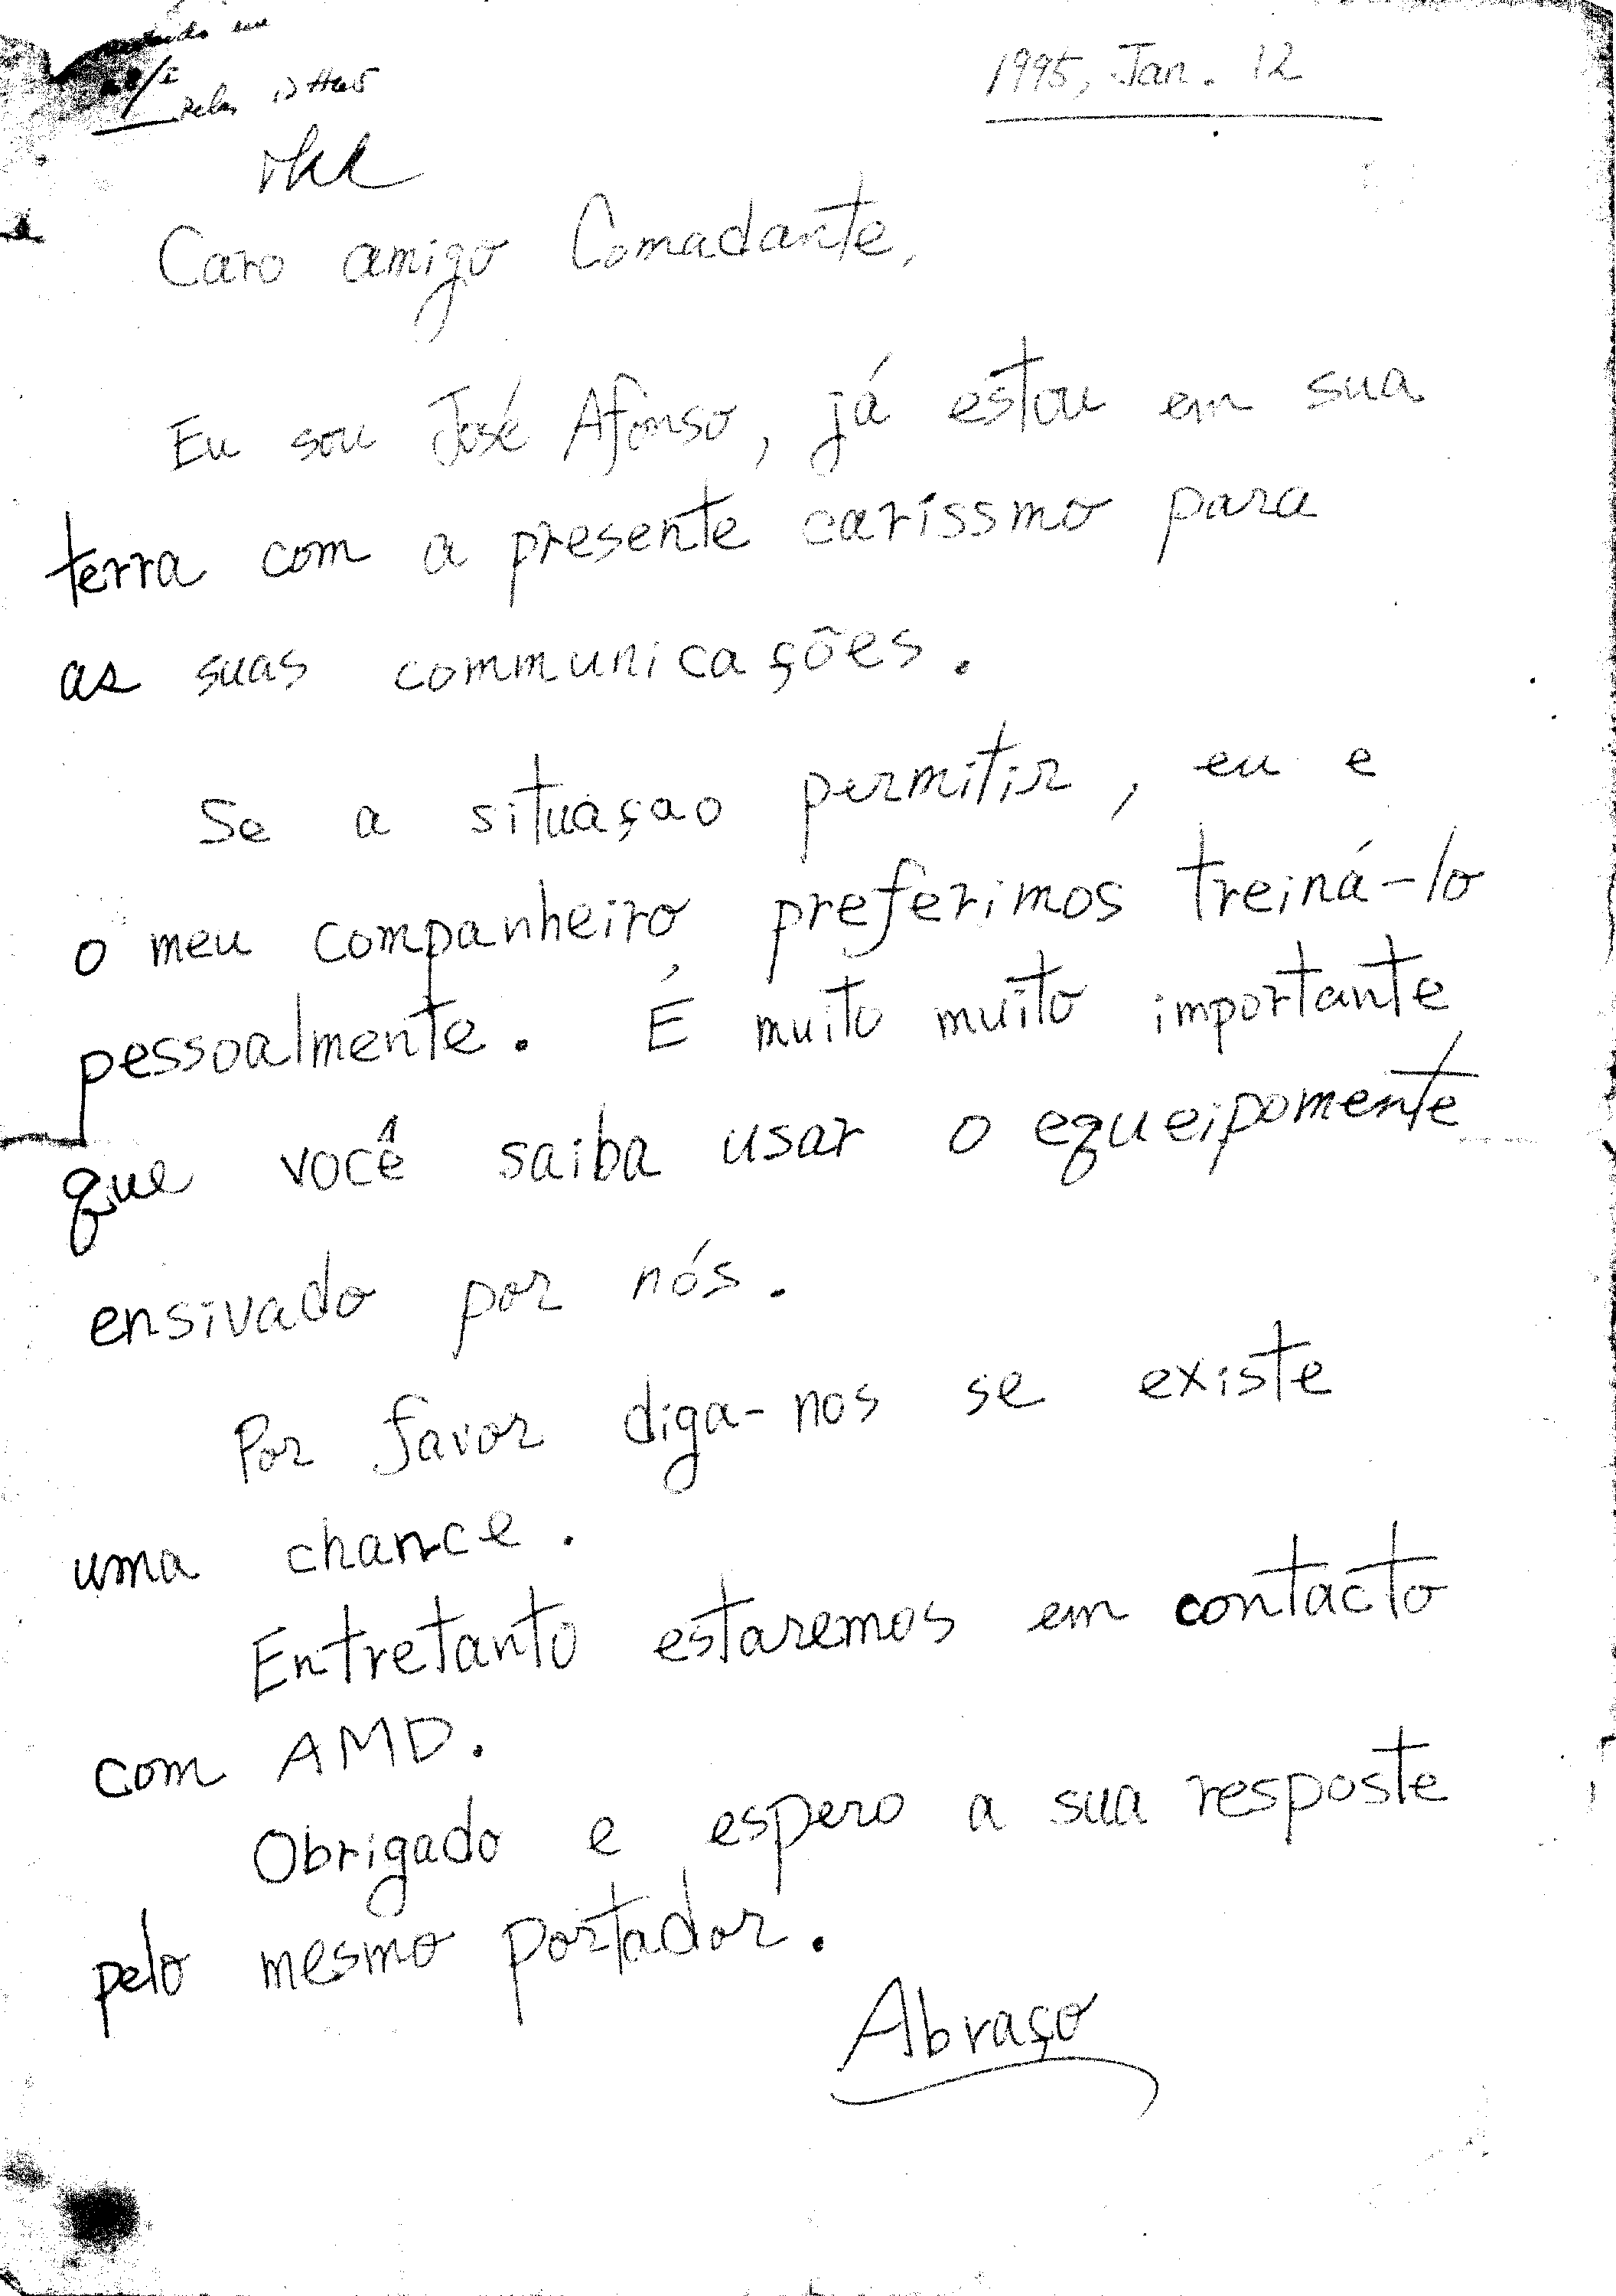 1995, Jan. 12
pelas
Caro amigo Comadante,
Eu sou José Afonso, já estou em sua
terra com a presente caríssmo para
as suas communicações.
Se a situaçao permitir, eu e
o meu companheiro preferimos treiná-lo
pessoalmente. É muito muito importante
que você saiba usar o equeipomente
ensivado por nós.
Por favor diga-nos se existe
uma chance.
Entretanto estaremos em contacto
com AMD.
Obrigado e espero a sua resposte
pelo mesmo portador.
Abraço